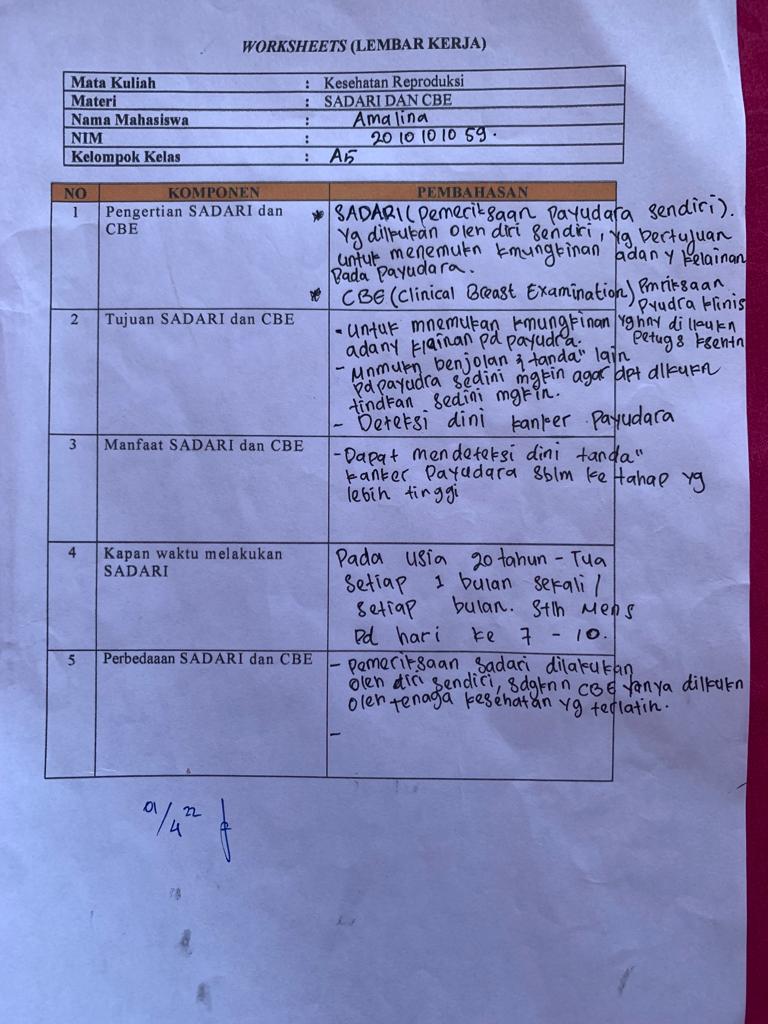 WORKSHEETS (LEMBAR KERJA)
Mata Kuliah : Kesehatan Reproduksi
Materi : SADARI DAN CBE
Nama Mahasiswa : Amalina
NIM : 2010101059.
Kelompok Kelas : A5
NO KOMPONEN PEMBAHASAN
1 Pengertian SADARI dan CBE
* SADARI (pemeriksaan payudara sendiri).
yg dilkukan oleh diri sendiri, yg bertujuan
untuk menemukn kmungkinan adany kelainan
pada payudara.
* CBE (Clinical Breast Examination) Pmriksaan
Pyudra klinis
yg hny dilkukn
petugs ksehtn
2 Tujuan SADARI dan CBE
- Untuk mnemukan kmungkinan
adany klainan pd payudra.
- Mnmukn benjolan & tanda" lain
pd payudra sedini mgkin agar dpt dlkukn
tindkan sedini mgkin.
- Deteksi dini kanker payudara
3 Manfaat SADARI dan CBE
- Dapat mendeteksi dini tanda"
kanker payudara sblm ke tahap yg
lebih tinggi
4 Kapan waktu melakukan
SADARI
Pada usia 20 tahun - Tua
Setiap 1 bulan sekali /
setiap bulan. Stlh Mens
Pd hari ke 7 - 10.
5 Perbedaaan SADARI dan CBE
- Pemeriksaan sadari dilakukan
oleh diri sendiri, sdgknn CBE yanya dilkukn
oleh tenaga kesehatan yg terlatih.
-
01/4 22